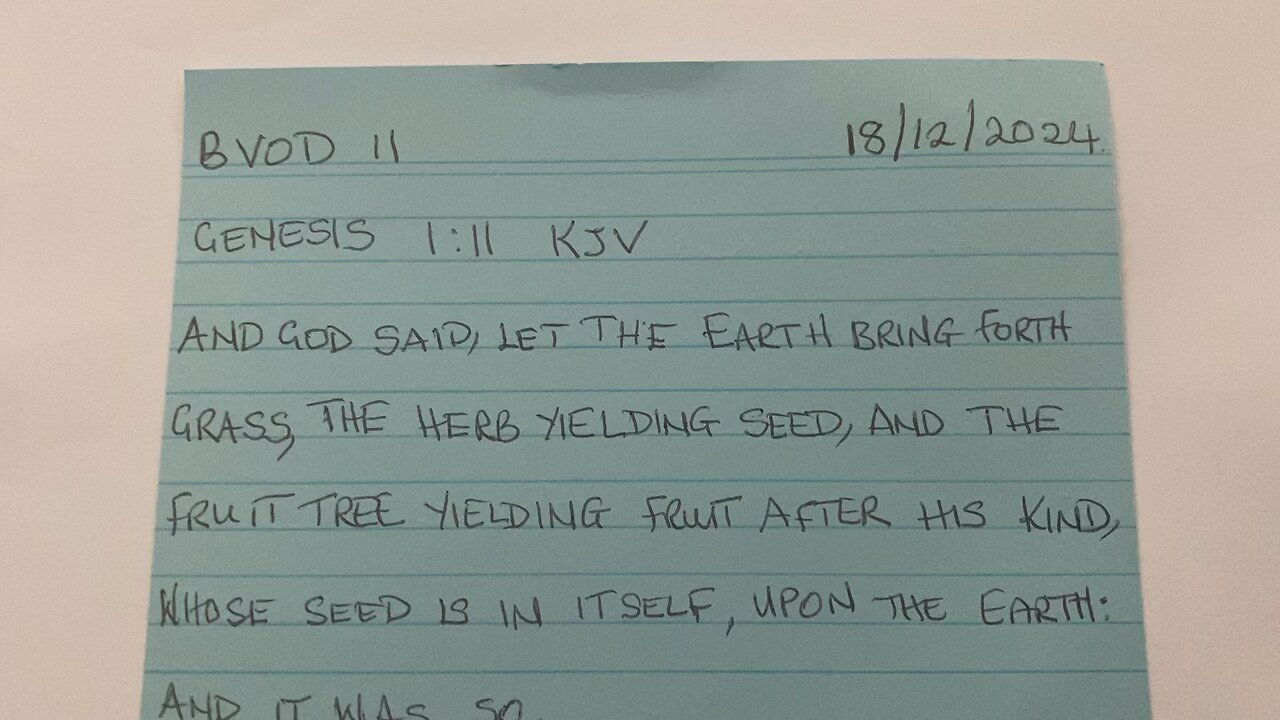 BVOD 11 18/12/2024.
GENESIS 1:11 KJV
AND GOD SAID, LET THE EARTH BRING FORTH
GRASS, THE HERB YIELDING SEED, AND THE
FRUIT TREE YIELDING FRUIT AFTER HIS KIND,
WHOSE SEED IS IN ITSELF, UPON THE EARTH:
AND IT WAS SO.